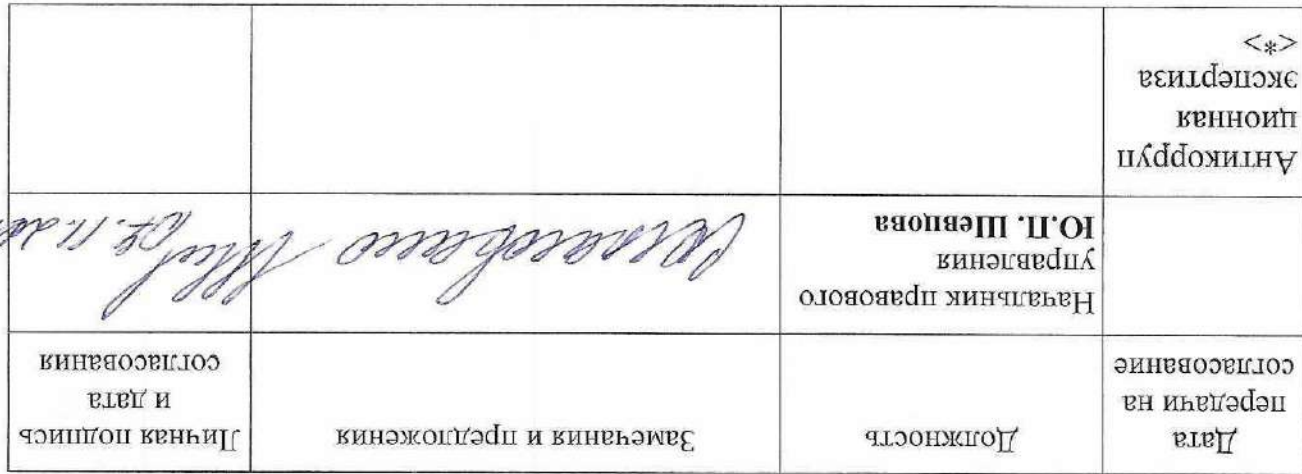 Дата
передачи на
согласование
Должность
Замечания и предложения
Личная подпись
и дата
согласования
Начальник правового
управления
Ю.П. Шевцова
Согласовано
Антикорруп
ционная
экспертиза
<*>